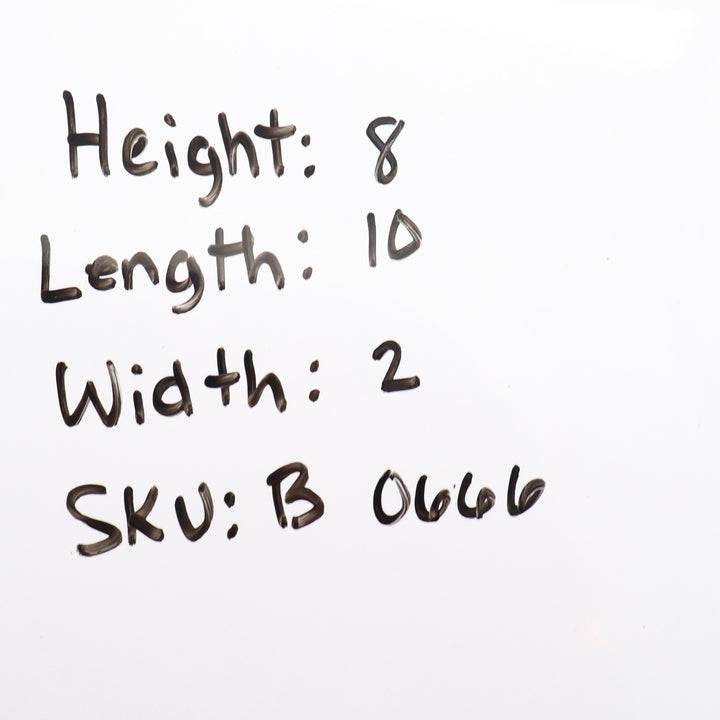 Height: 8
Length: 10
Width: 2
SKU: B 0666